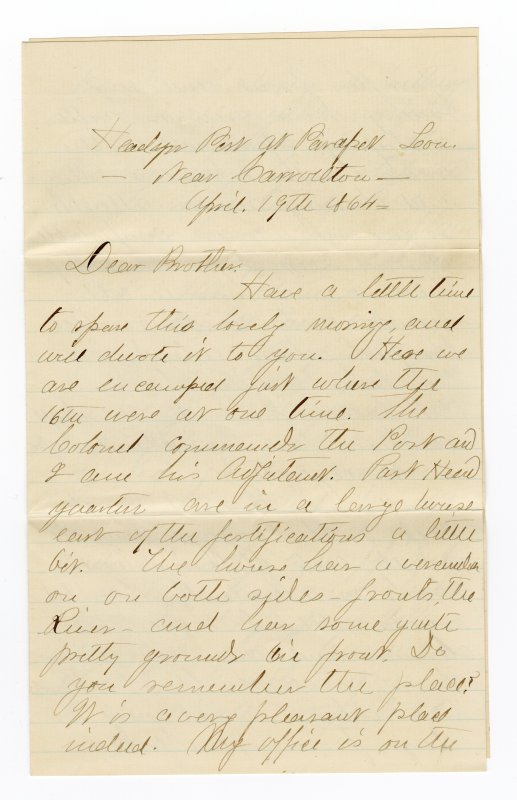 Headqrs Post at Parapet Lou.
— Near Carrollton —
April. 19th 1864 =
Dear Brother.
Have a little time
to spare this lovely morning, and
will devote it to you. Here we
are encamped just where the
16th were at one time. The
Colonel commands the Post and
I am his Adjutant. Post Head
quarters are in a large house
east of the fortifications a little
bit. The house has a verandah
on on both sides - fronts the
River - and has some quite
pretty grounds in front. Do
you remember the place?
It is a very pleasant place
indeed. My office is on the